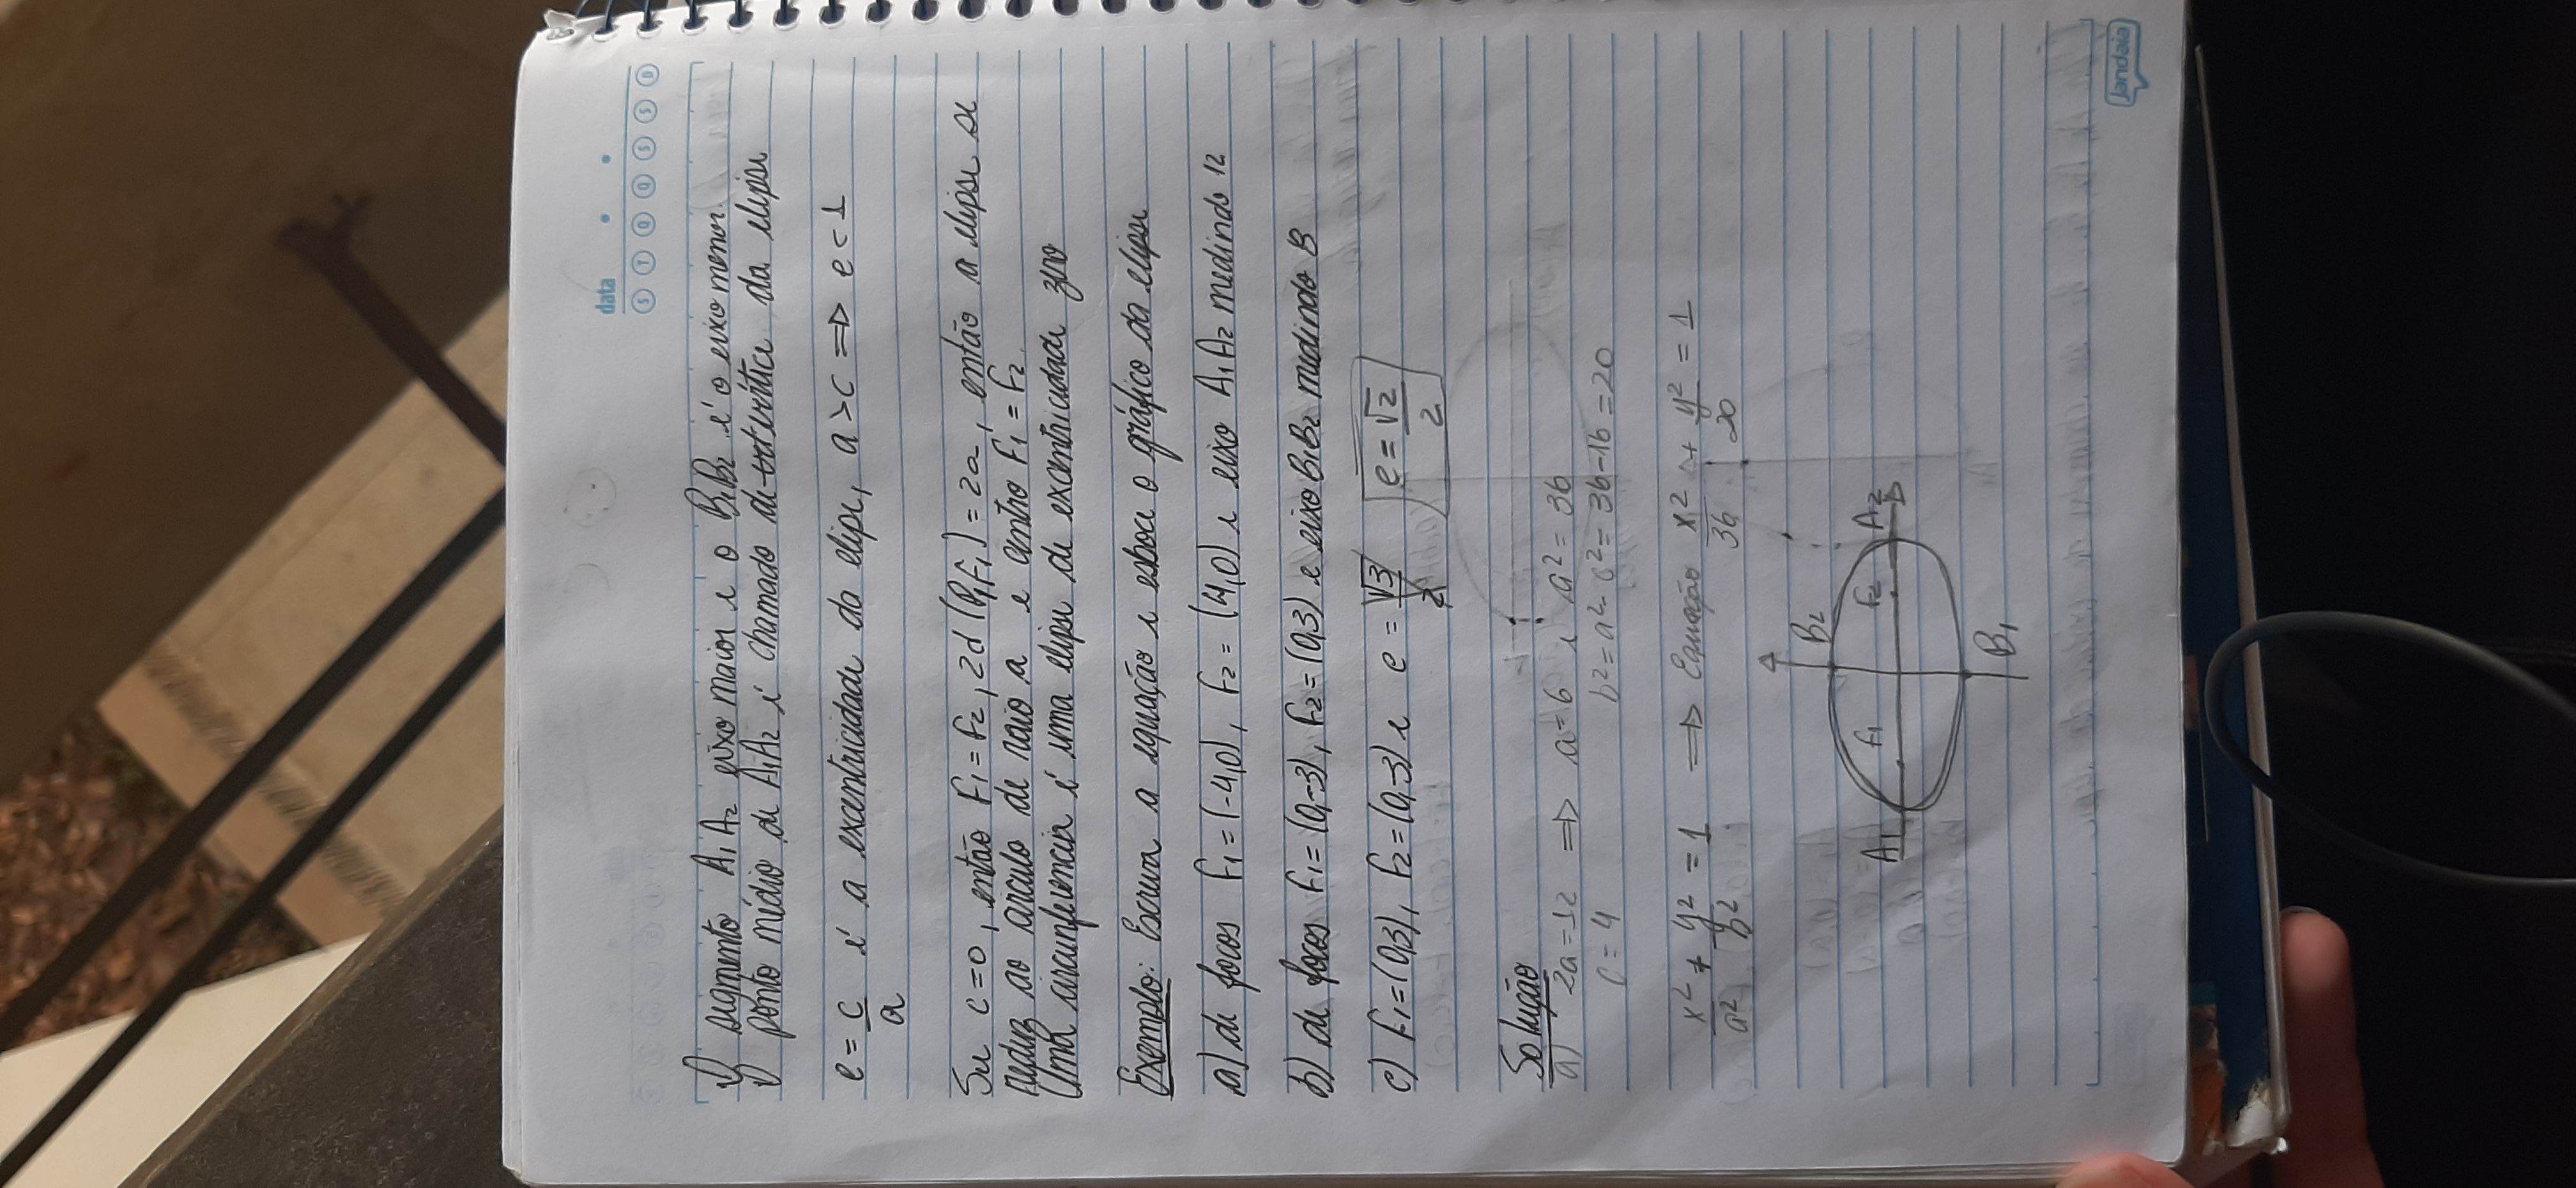 data
S T Q Q S S D
O segmento A1A2 eixo maior e o B1B2 é o eixo menor.
O ponto médio de A1A2 é chamado de vértice da elipse
e = c/a é a excentricidade da elipse, a > c ⇒ e < 1
Se c=0, então F1 = F2, 2d(P,F1) = 2a, então a elipse se
reduz ao circulo de raio a e centro F1 = F2.
Uma circunferencia é uma elipse de excentricidade zero
Exemplo: Escreva a equação e esboce o gráfico da elipse
a) de focos F1 = (-4,0), F2 = (4,0) e eixo A1A2 medindo 12
b) de focos F1 = (0,-3), F2 = (0,3) e eixo B1B2 medindo 8
c) F1 = (0,3), F2 = (0,-3) e e = √3/2 e = √2/2
Solução
a) 2a = 12 ⇒ a = 6 e a² = 36
c = 4 b² = a² - c² = 36 - 16 = 20
x²/a² + y²/b² = 1 ⇒ Equação x²/36 + y²/20 = 1
B2
A1 F1 F2 A2
B1
Jandaia